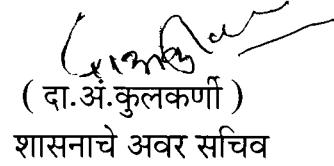 ( दा.अं.कुलकर्णी )
शासनाचे अवर सचिव